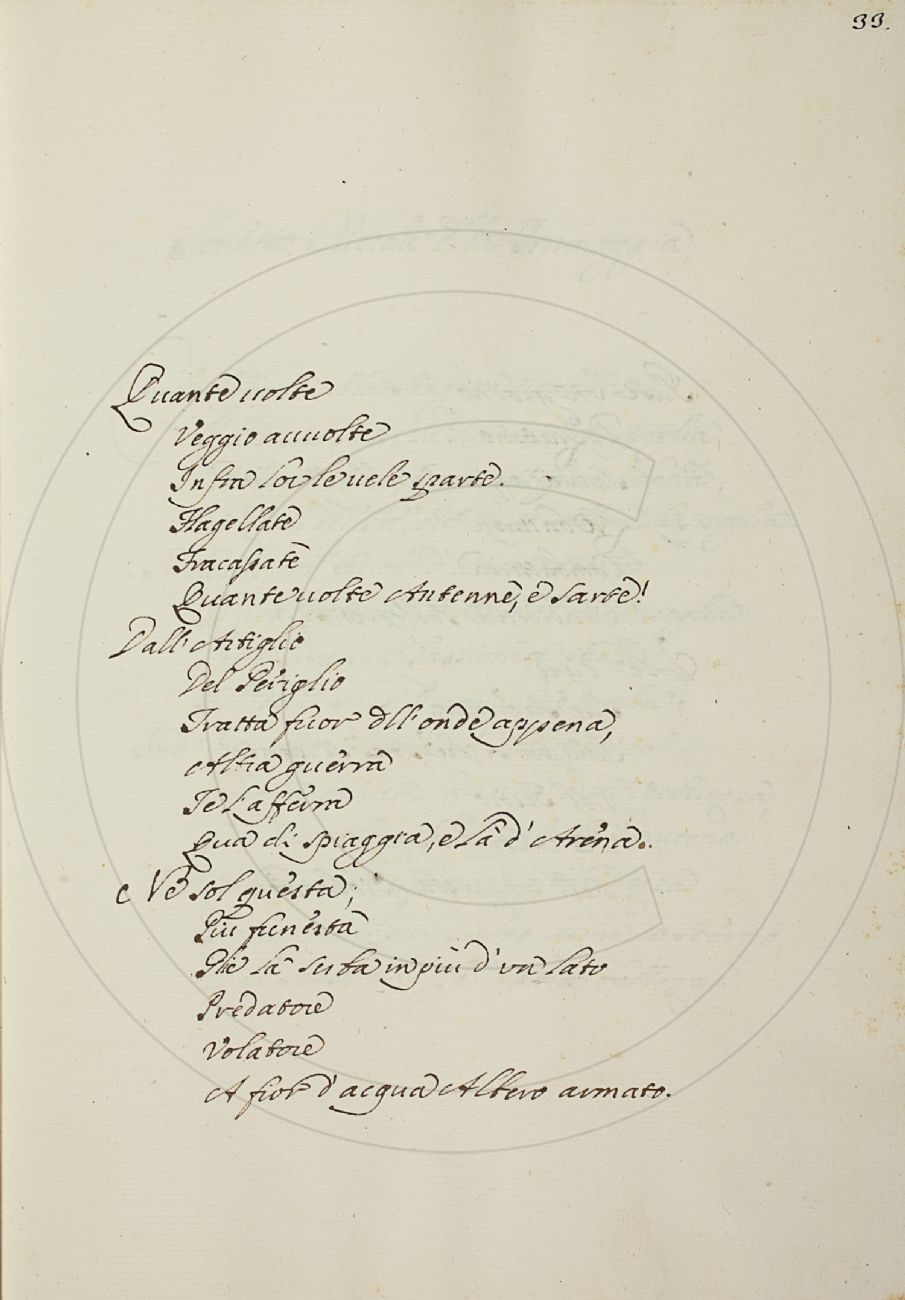 33.
Quante uolte
Veggio auuolte
Infra lor le uele sparte.
Flagellate
Fracassate
Quante uolte Antenne, e Sarte!
Dall' Artiglio
Del Periglio
Tratta fuor dll' onde appena,
Altra guerra
Te l'afferra
Qua di spiaggia, e là d' Arena.
Nè sol questa;
Più funesta
Glie la serba in più d' vn lato
Predatore
Volatore
A fior d' acqua Albero armato.